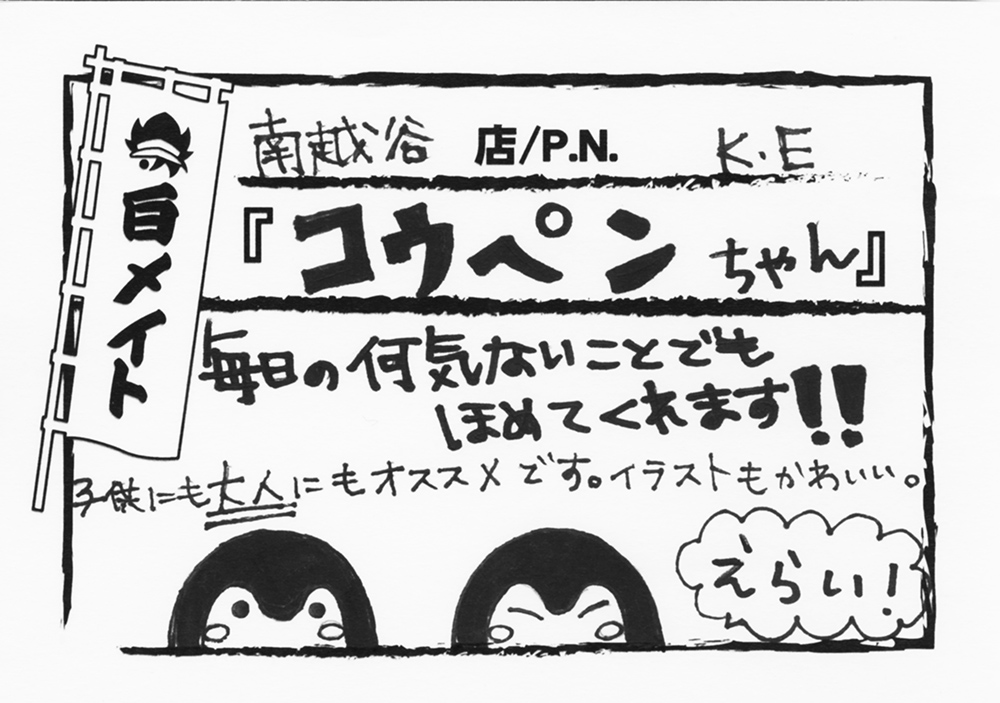 百メイト
南越谷 店/P.N. K.E
『コウペンちゃん』
毎日の何気ないことでも
ほめてくれます!!
子供にも大人にもオススメです。イラストもかわいい。
えらい!